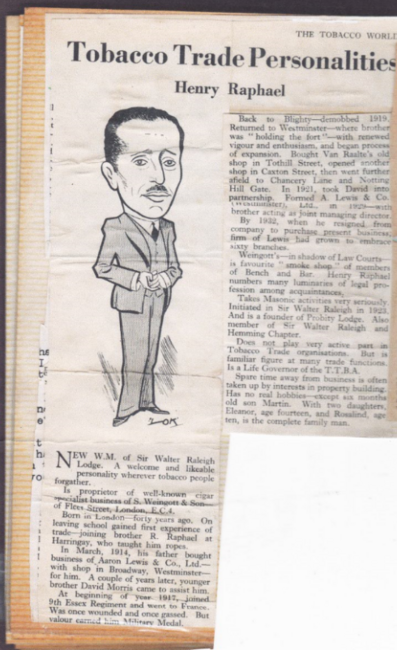 THE TOBACCO WORLD
Tobacco Trade Personalities
Henry Raphael
NEW W.M. of Sir Walter Raleigh
Lodge. A welcome and likeable
personality wherever tobacco people
forgather.
Is proprietor of well-known cigar
specialist business of S. Weingott & Son—
of Fleet Street, London, E.C.4.
Born in London—forty years ago. On
leaving school gained first experience of
trade—joining brother R. Raphael at
Harringay, who taught him ropes.
In March, 1914, his father bought
business of Aaron Lewis & Co., Ltd.—
with shop in Broadway, Westminster—
for him. A couple of years later, younger
brother David Morris came to assist him.
At beginning of year 1917, joined
9th Essex Regiment and went to France.
Was once wounded and once gassed. But
valour earned him Military Medal.
Back to Blighty—demobbed 1919.
Returned to Westminster—where brother
was "holding the fort"—with renewed
vigour and enthusiasm, and began process
of expansion. Bought Van Raalte's old
shop in Tothill Street, opened another
shop in Caxton Street, then went further
afield to Chancery Lane and Notting
Hill Gate. In 1921, took David into
partnership. Formed A. Lewis & Co.
(Westminster), Ltd., in 1925—with
brother acting as joint managing director.
By 1932, when he resigned from
company to purchase present business,
firm of Lewis had grown to embrace
sixty branches.
Weingott's—in shadow of Law Courts—
is favourite "smoke shop" of members
of Bench and Bar. Henry Raphael
numbers many luminaries of legal pro-
fession among acquaintances.
Takes Masonic activities very seriously.
Initiated in Sir Walter Raleigh in 1923.
And is a founder of Probity Lodge. Also
member of Sir Walter Raleigh and
Hemming Chapter.
Does not play very active part in
Tobacco Trade organisations. But is
familiar figure at many trade functions.
Is a Life Governor of the T.T.B.A.
Spare time away from business is often
taken up by interests in property building.
Has no real hobbies—except six months
old son Martin. With two daughters,
Eleanor, age fourteen, and Rosalind, age
ten, is the complete family man.